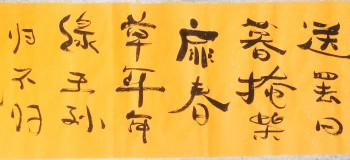 送罢日
暮掩柴
扉春
草年年
绿王孙
归不归